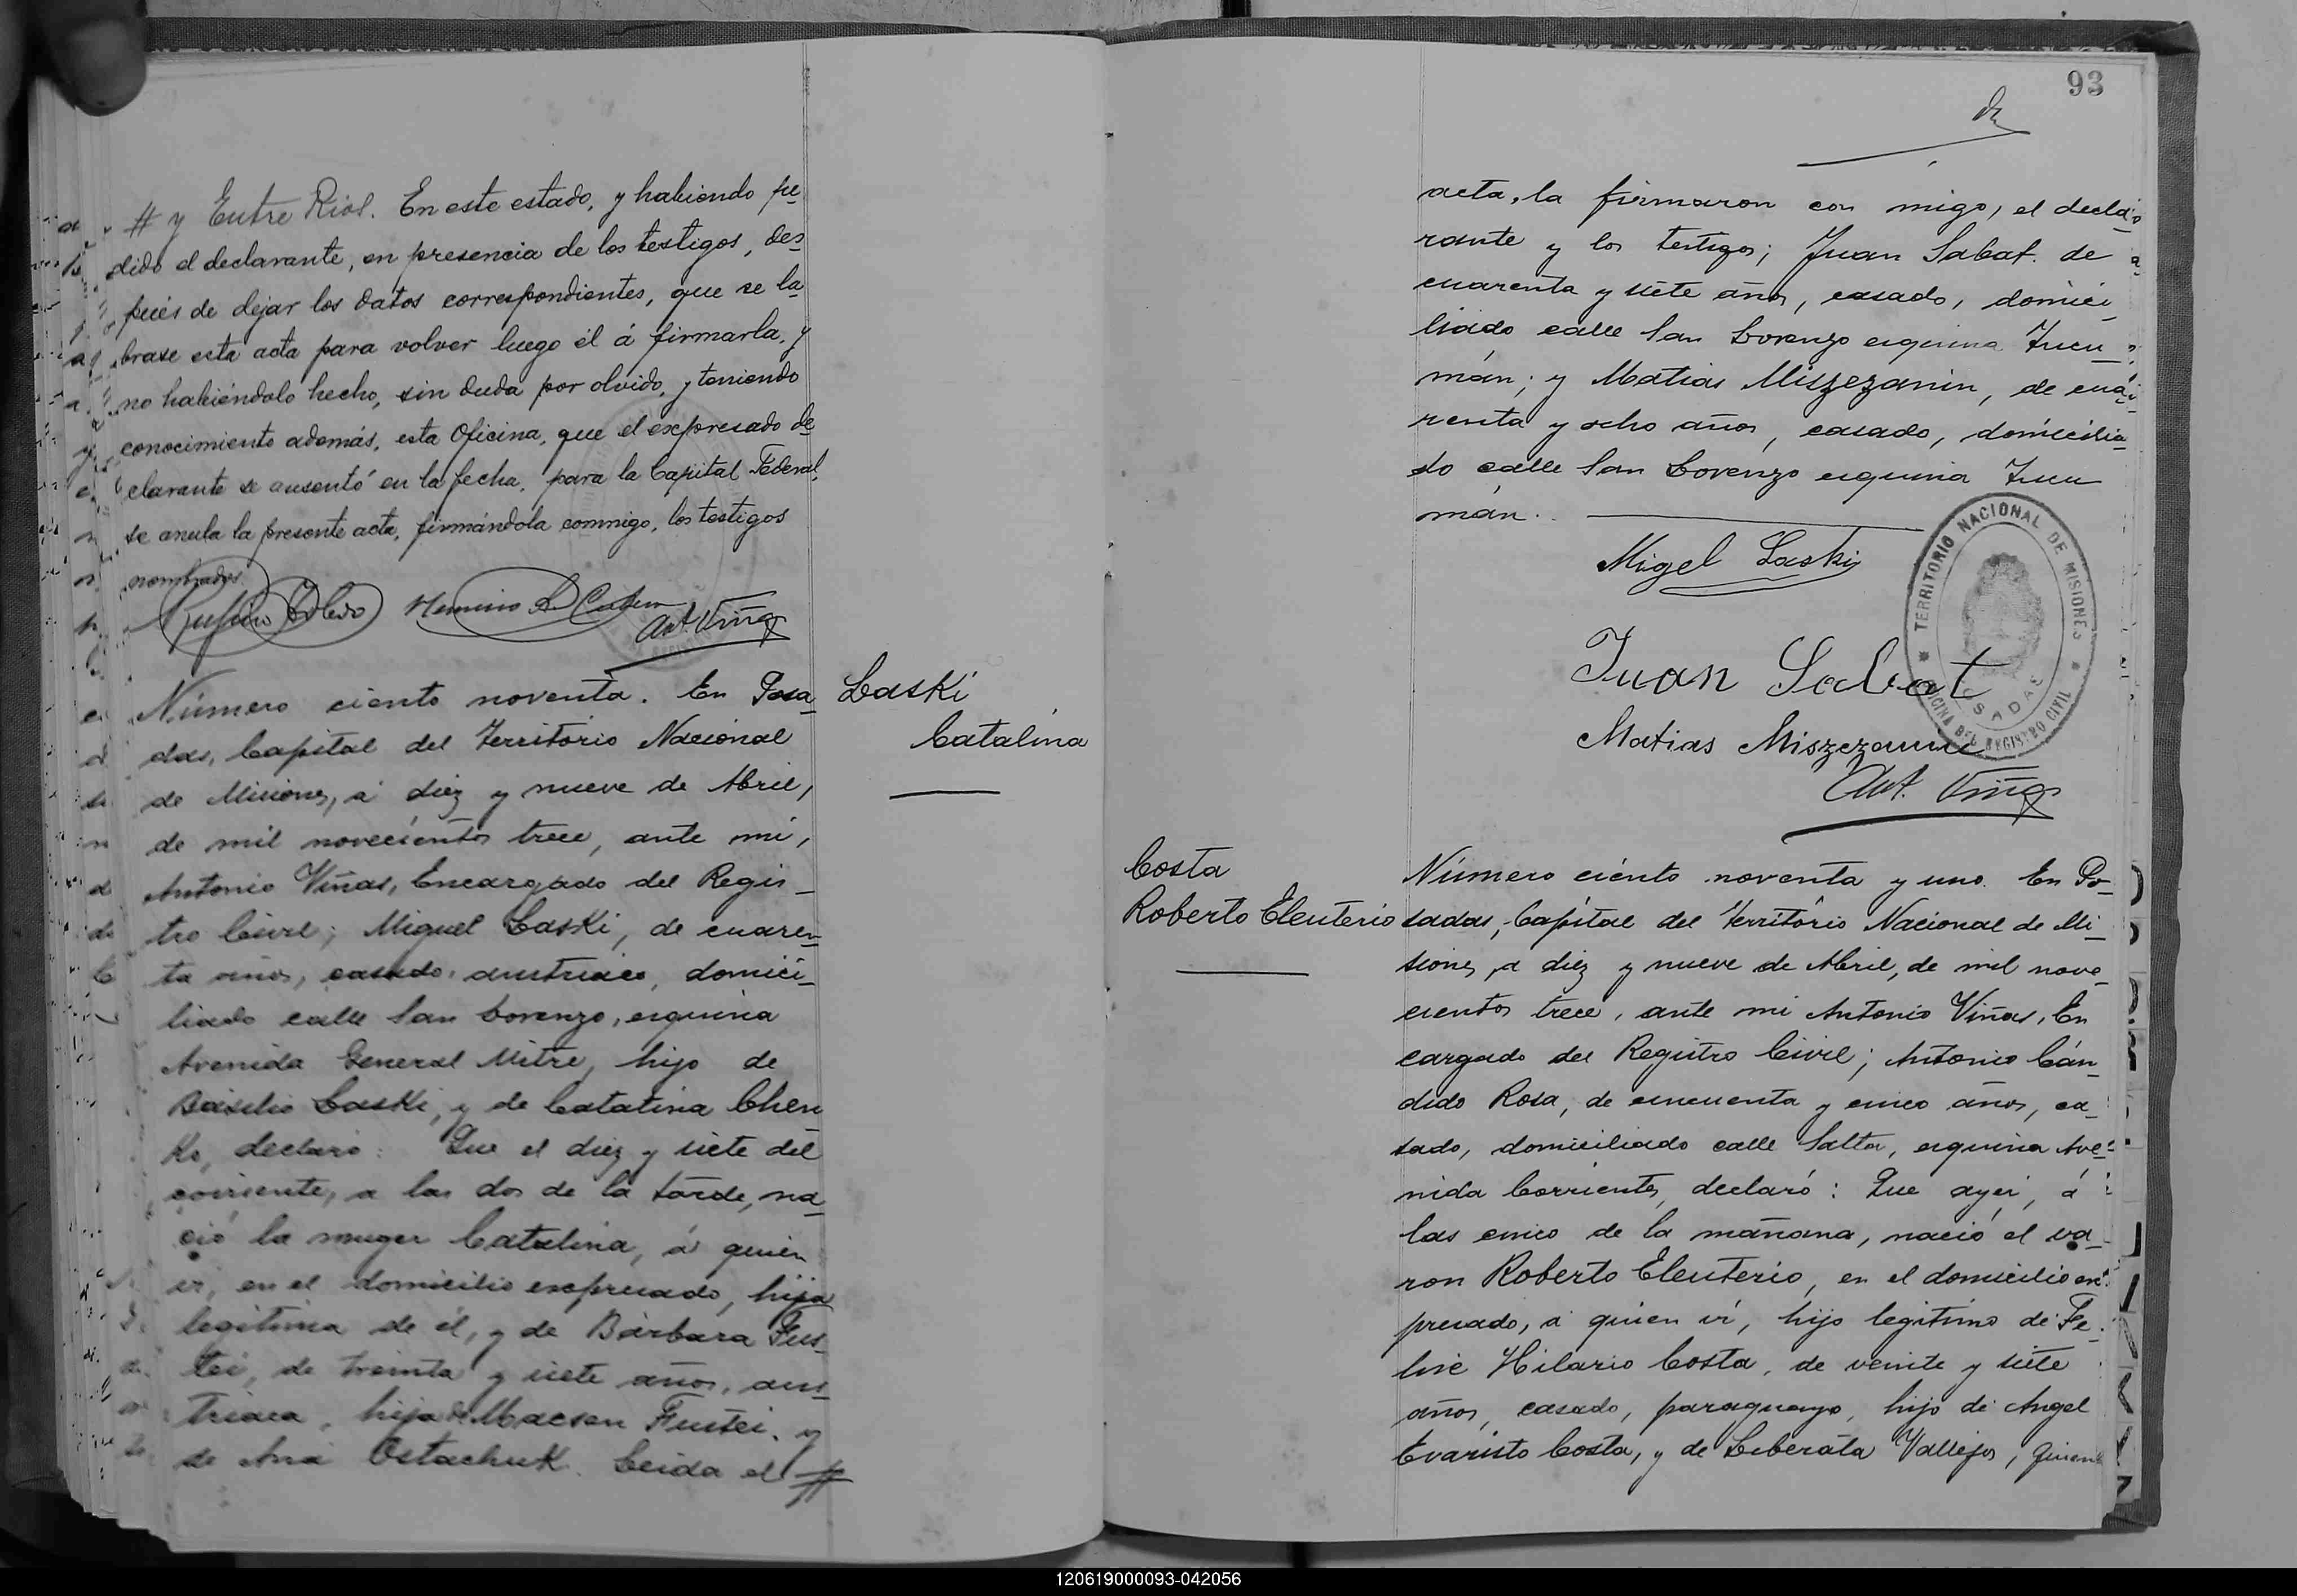 # y Entre Rios. En este estado, y habiendo pe
dido el declarante, en presencia de los testigos, des
pués de dejar los datos correspondientes, que se la
brase esta acta para volver luego él á firmarla, y
no habiéndolo hecho, sin duda por olvido, y teniendo
conocimiento además, esta Oficina, que el expresado de
clarante se ausentó en la fecha, para la Capital Federal,
se anula la presente acta, firmándola conmigo, los testigos
nombrados.
Ant. Viñas
Laski
Catalina
Número ciento noventa. En Posa
das, Capital del Territorio Nacional
de Misiones, a diez y nueve de Abril,
de mil novecientos trece, ante mi,
Antonio Viñas, Encargado del Regis_
tro Civil; Miguel Laski, de cuaren_
ta años, casado, austriaco, domici_
liado calle San Lorenzo, esquina
Avenida General Mitre, hijo de
Basilio Laski, y de Catalina Chen
Ko, declaró: Que el diez y siete del
corriente, a las dos de la tarde, na_
ció la muger Catalina, á quien
vi, en el domicilio expresado, hija
legitima de él, y de Bárbara Fus_
tei, de treinta y siete años, aus_
triaca, hija de Macsen Fustei, y
de Ana Ostachuk. Leida el #
93
acta, la firmaron con migo, el decla_
rante y los testigos; Juan Sabat. de
cuarenta y siete años, casado, domici_
liado calle San Lorenzo esquina Tucu_
mán; y Matias Miszezanin, de cua_
renta y ocho años, casado, domicilia_
do calle San Lorenzo esquina Tucu
mán.
Migel Laski
Juan Sabat
Matias Miszezanin
Ant. Viñas
TERRITORIO NACIONAL DE MISIONES
OFICINA DEL REGISTRO CIVIL
POSADAS
Costa
Roberto Eleuterio
Número ciento noventa y uno. En Po_
sadas, Capital del Territorio Nacional de Mi_
siones, a diez y nueve de Abril, de mil nove_
cientos trece, ante mi Antonio Viñas, En
cargado del Registro Civil; Antonio Cán_
dido Rosa, de cincuenta y cinco años, ca_
sado, domiciliado calle Salta, esquina Ave_
nida Corrientes, declaró: Que ayer, á
las cinco de la mañana, nació el va_
ron Roberto Eleuterio, en el domicilio ex_
presado, a quien vi, hijo legitimo de Fe_
lise Hilario Costa, de veinte y siete
años, casado, paraguayo, hijo de Angel
Evaristo Costa, y de Liberata Vallejos, quien
120619000093-042056